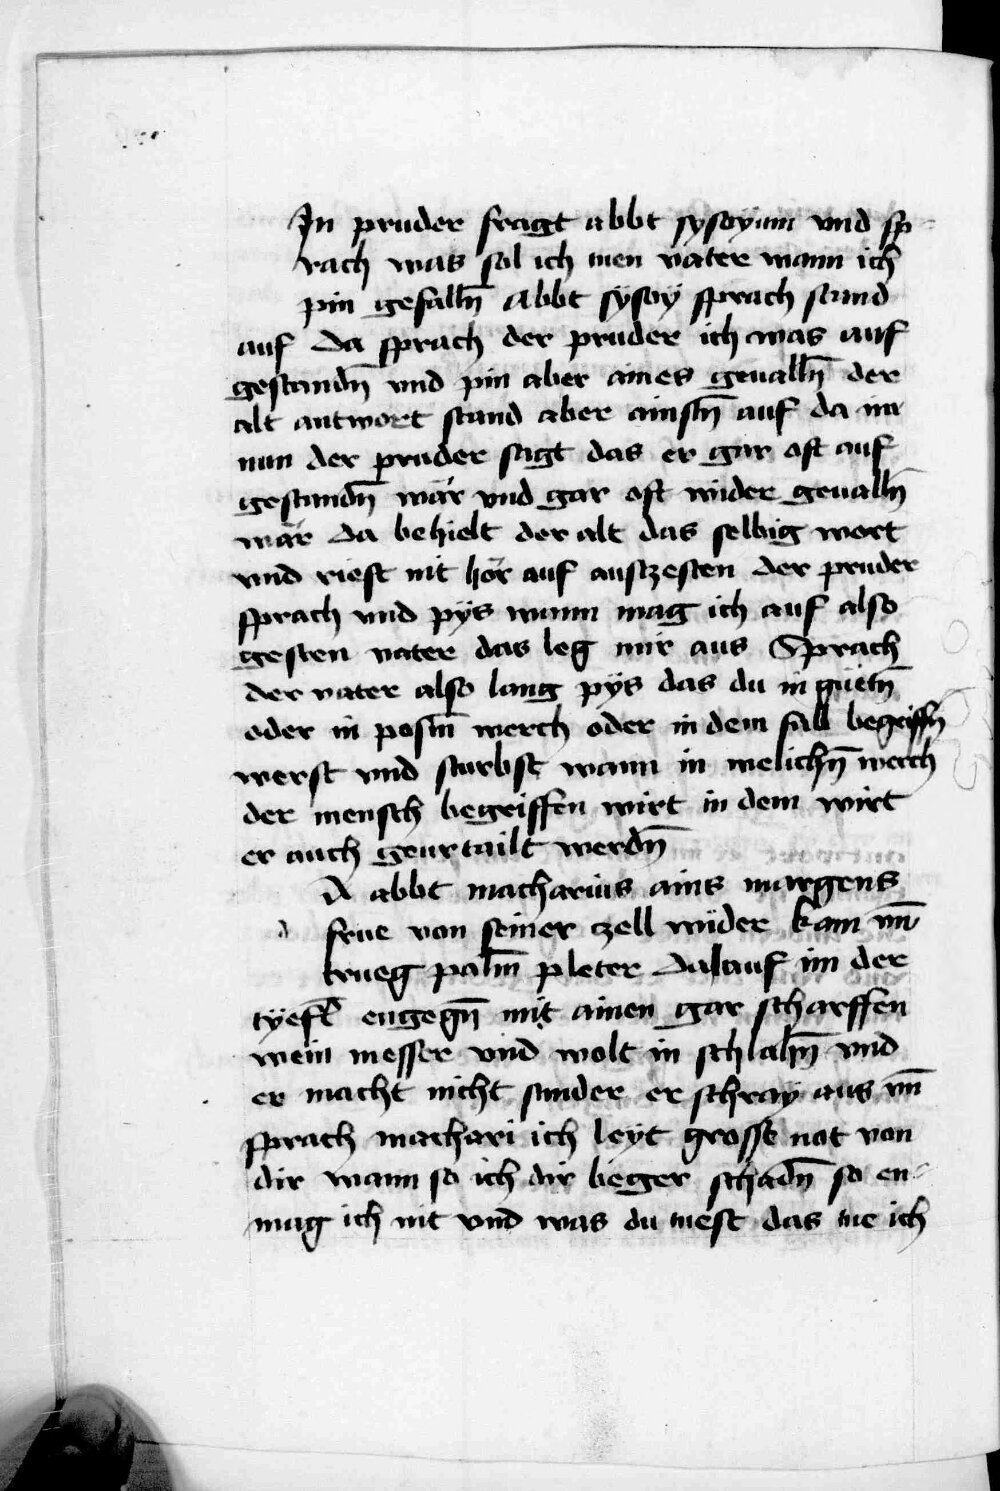 In pruder fragt abbt sysoyum vnd sp-
rach was sol ich men vater wann ich
pin gefalln̄ Abbt sÿsoÿ sprach stand
auf Da sprach der pruder ich was auf
gestandn̄ vnd pin aber aines geualln̄ der
alt antwort stand aber ainstn̄ auf da im
nun der pruder sagt das er gar oft auf
gestandn̄ wär vnd gar oft wider geualln̄
wär Da behielt der alt das selbig wort
vnd rieft nit hör auf aufczesten Der pruder
sprach vnd pÿs wann mag ich auf also
gesten vater das leg mir aus Sprach
der vater also lang pÿs das du in guetn̄
oder in posm̄ werch oder in dem fall begriffn̄
werst vnd sturbst wann in welichn̄ werch
der mensch begriffen wirt in dem wirt
er auch geurtailt werdn̄
A abbt macharius ains margens
d frue von seiner zell wider kam vn̄
trueg palm̄ pleter Da lauf im der
tÿefl engegn̄ mit ainen gar scharffen
wein messer vnd wolt in schlahn̄ vnd
er macht nicht sunder er schraÿ aus vn̄
sprach machari ich leyt grosse not von
dir wann so ich dir beger schadn̄ so en-
mag ich nit vnd was du tuest das tue ich